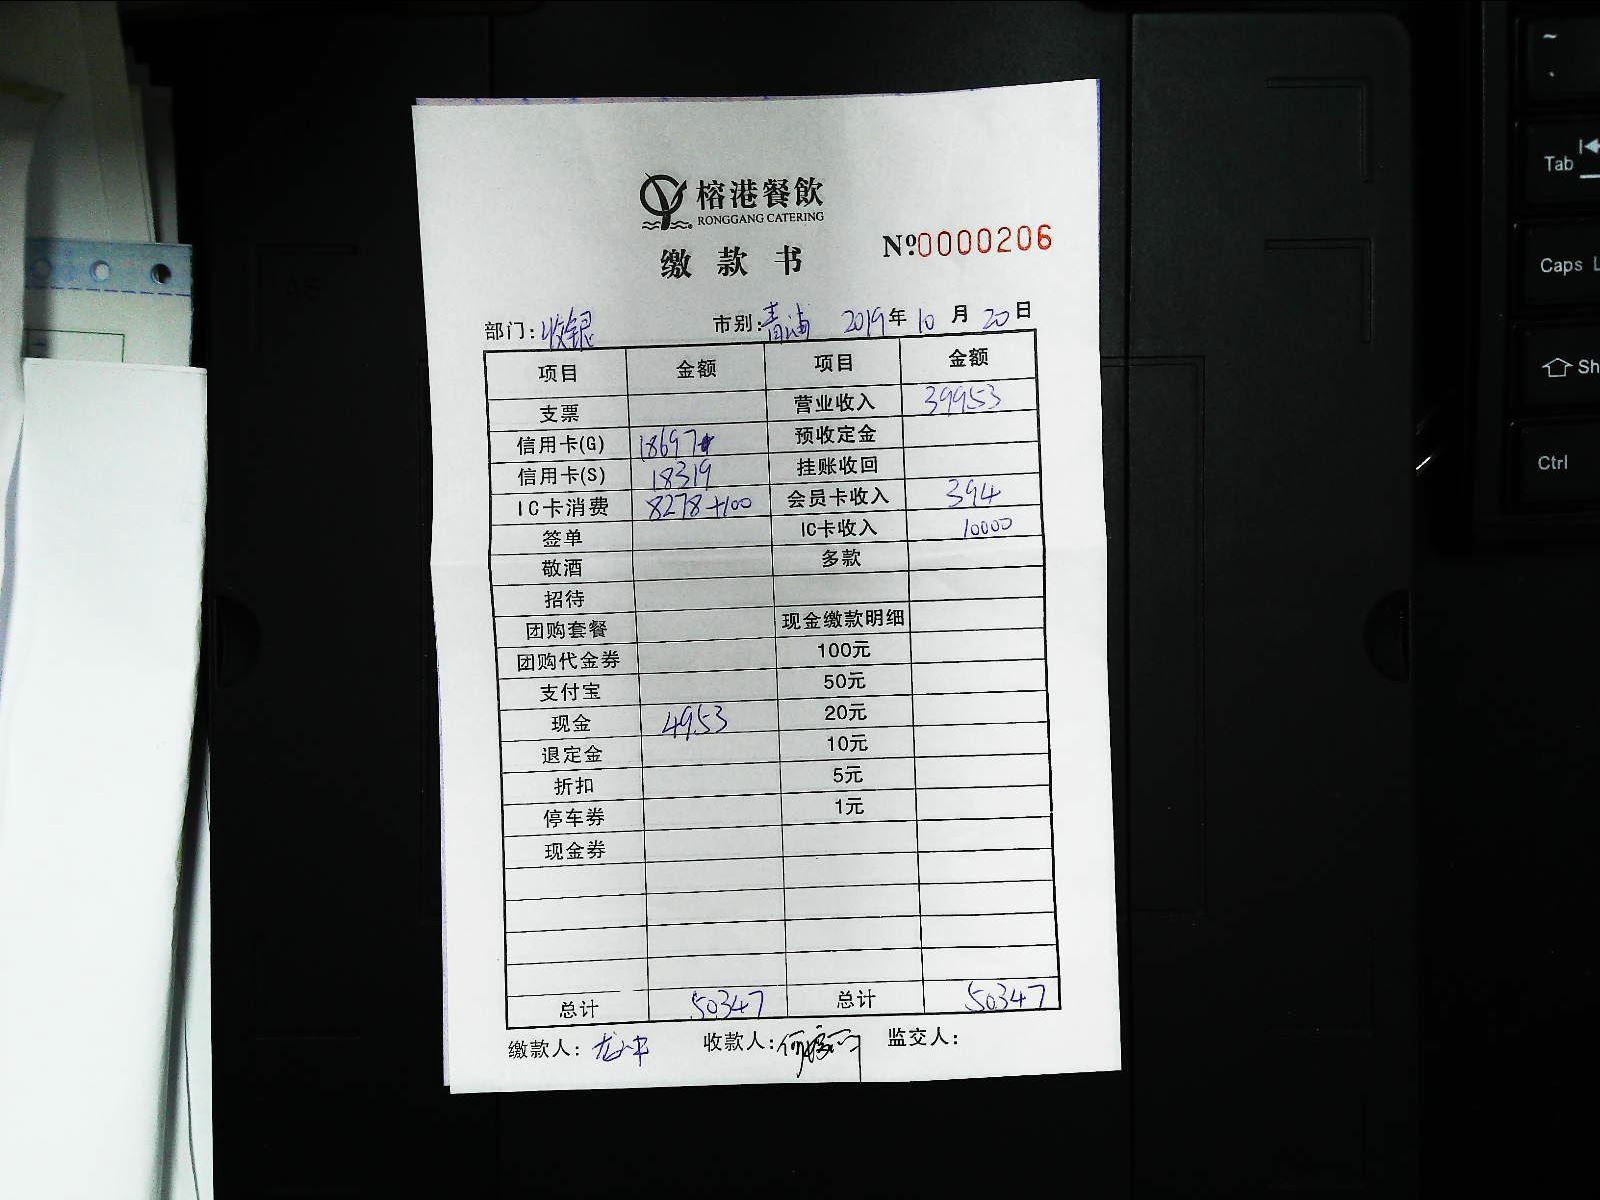 榕港餐飲
RONGGANG CATERING
缴款书 №0000206
部门:收银 市别:青浦 2019年10月20日
项目 金额 项目 金额
支票 营业收入 39953
信用卡(G) 18697 预收定金
信用卡(S) 18319 挂账收回
IC卡消费 8278+100 会员卡收入 394
签单 IC卡收入 10000
敬酒 多款
招待
团购套餐 现金缴款明细
团购代金券 100元
支付宝 50元
现金 4953 20元
退定金 10元
折扣 5元
停车券 1元
现金券
总计 50347 总计 50347
缴款人: 收款人: 监交人:
~
`
Tab
Caps L
Sh
Ctrl